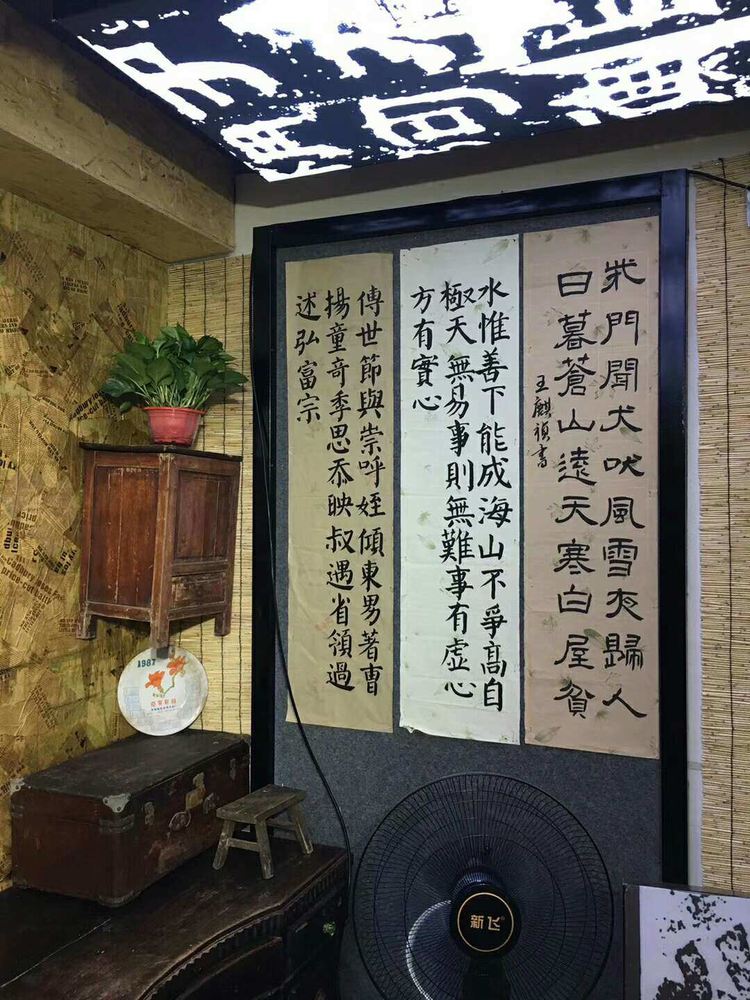 柴門聞犬吠風雪夜歸人
日暮蒼山遠天寒白屋貧
王麒禎書
水惟善下能成海山不爭高自
極天無易事則無難事有虛心
方有實心
傳世節與崇呼姪傾東男著曹
揚童奇季思忝映叔遇省領過
述弘富宗
1987
新飞